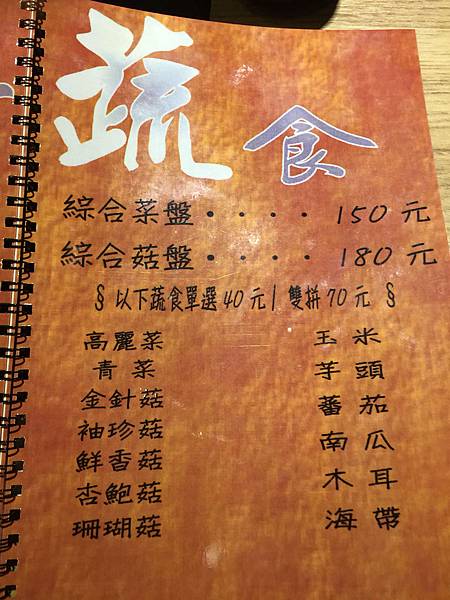 蔬食
綜合菜盤．．．．150元
綜合菇盤．．．．180元
§以下蔬食單選40元| 雙拼70元§
高麗菜 玉米
青菜 芋頭
金針菇 蕃茄
袖珍菇 南瓜
鮮香菇 木耳
杏鮑菇 海帶
珊瑚菇